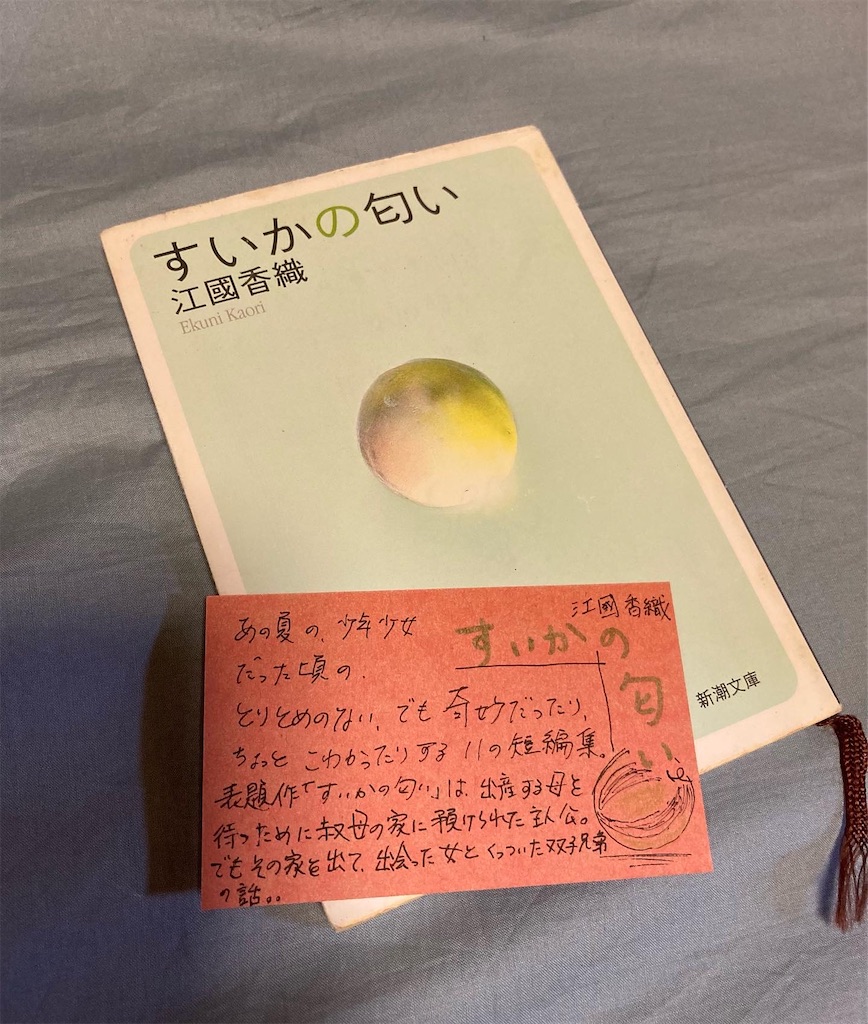 すいかの匂い
江國香織
Ekuni Kaori
新潮文庫
江國香織
すいかの匂い
あの夏の、少年少女
だった頃の、
とりとめのない、でも奇妙だったり、
ちょっと こわかったりする 11の短編集。
表題作「すいかの匂い」は、出産する母を
待つために叔母の家に預けられた主人公。
でもその家を出て、出会った女とくっついた双子兄弟
の話。。